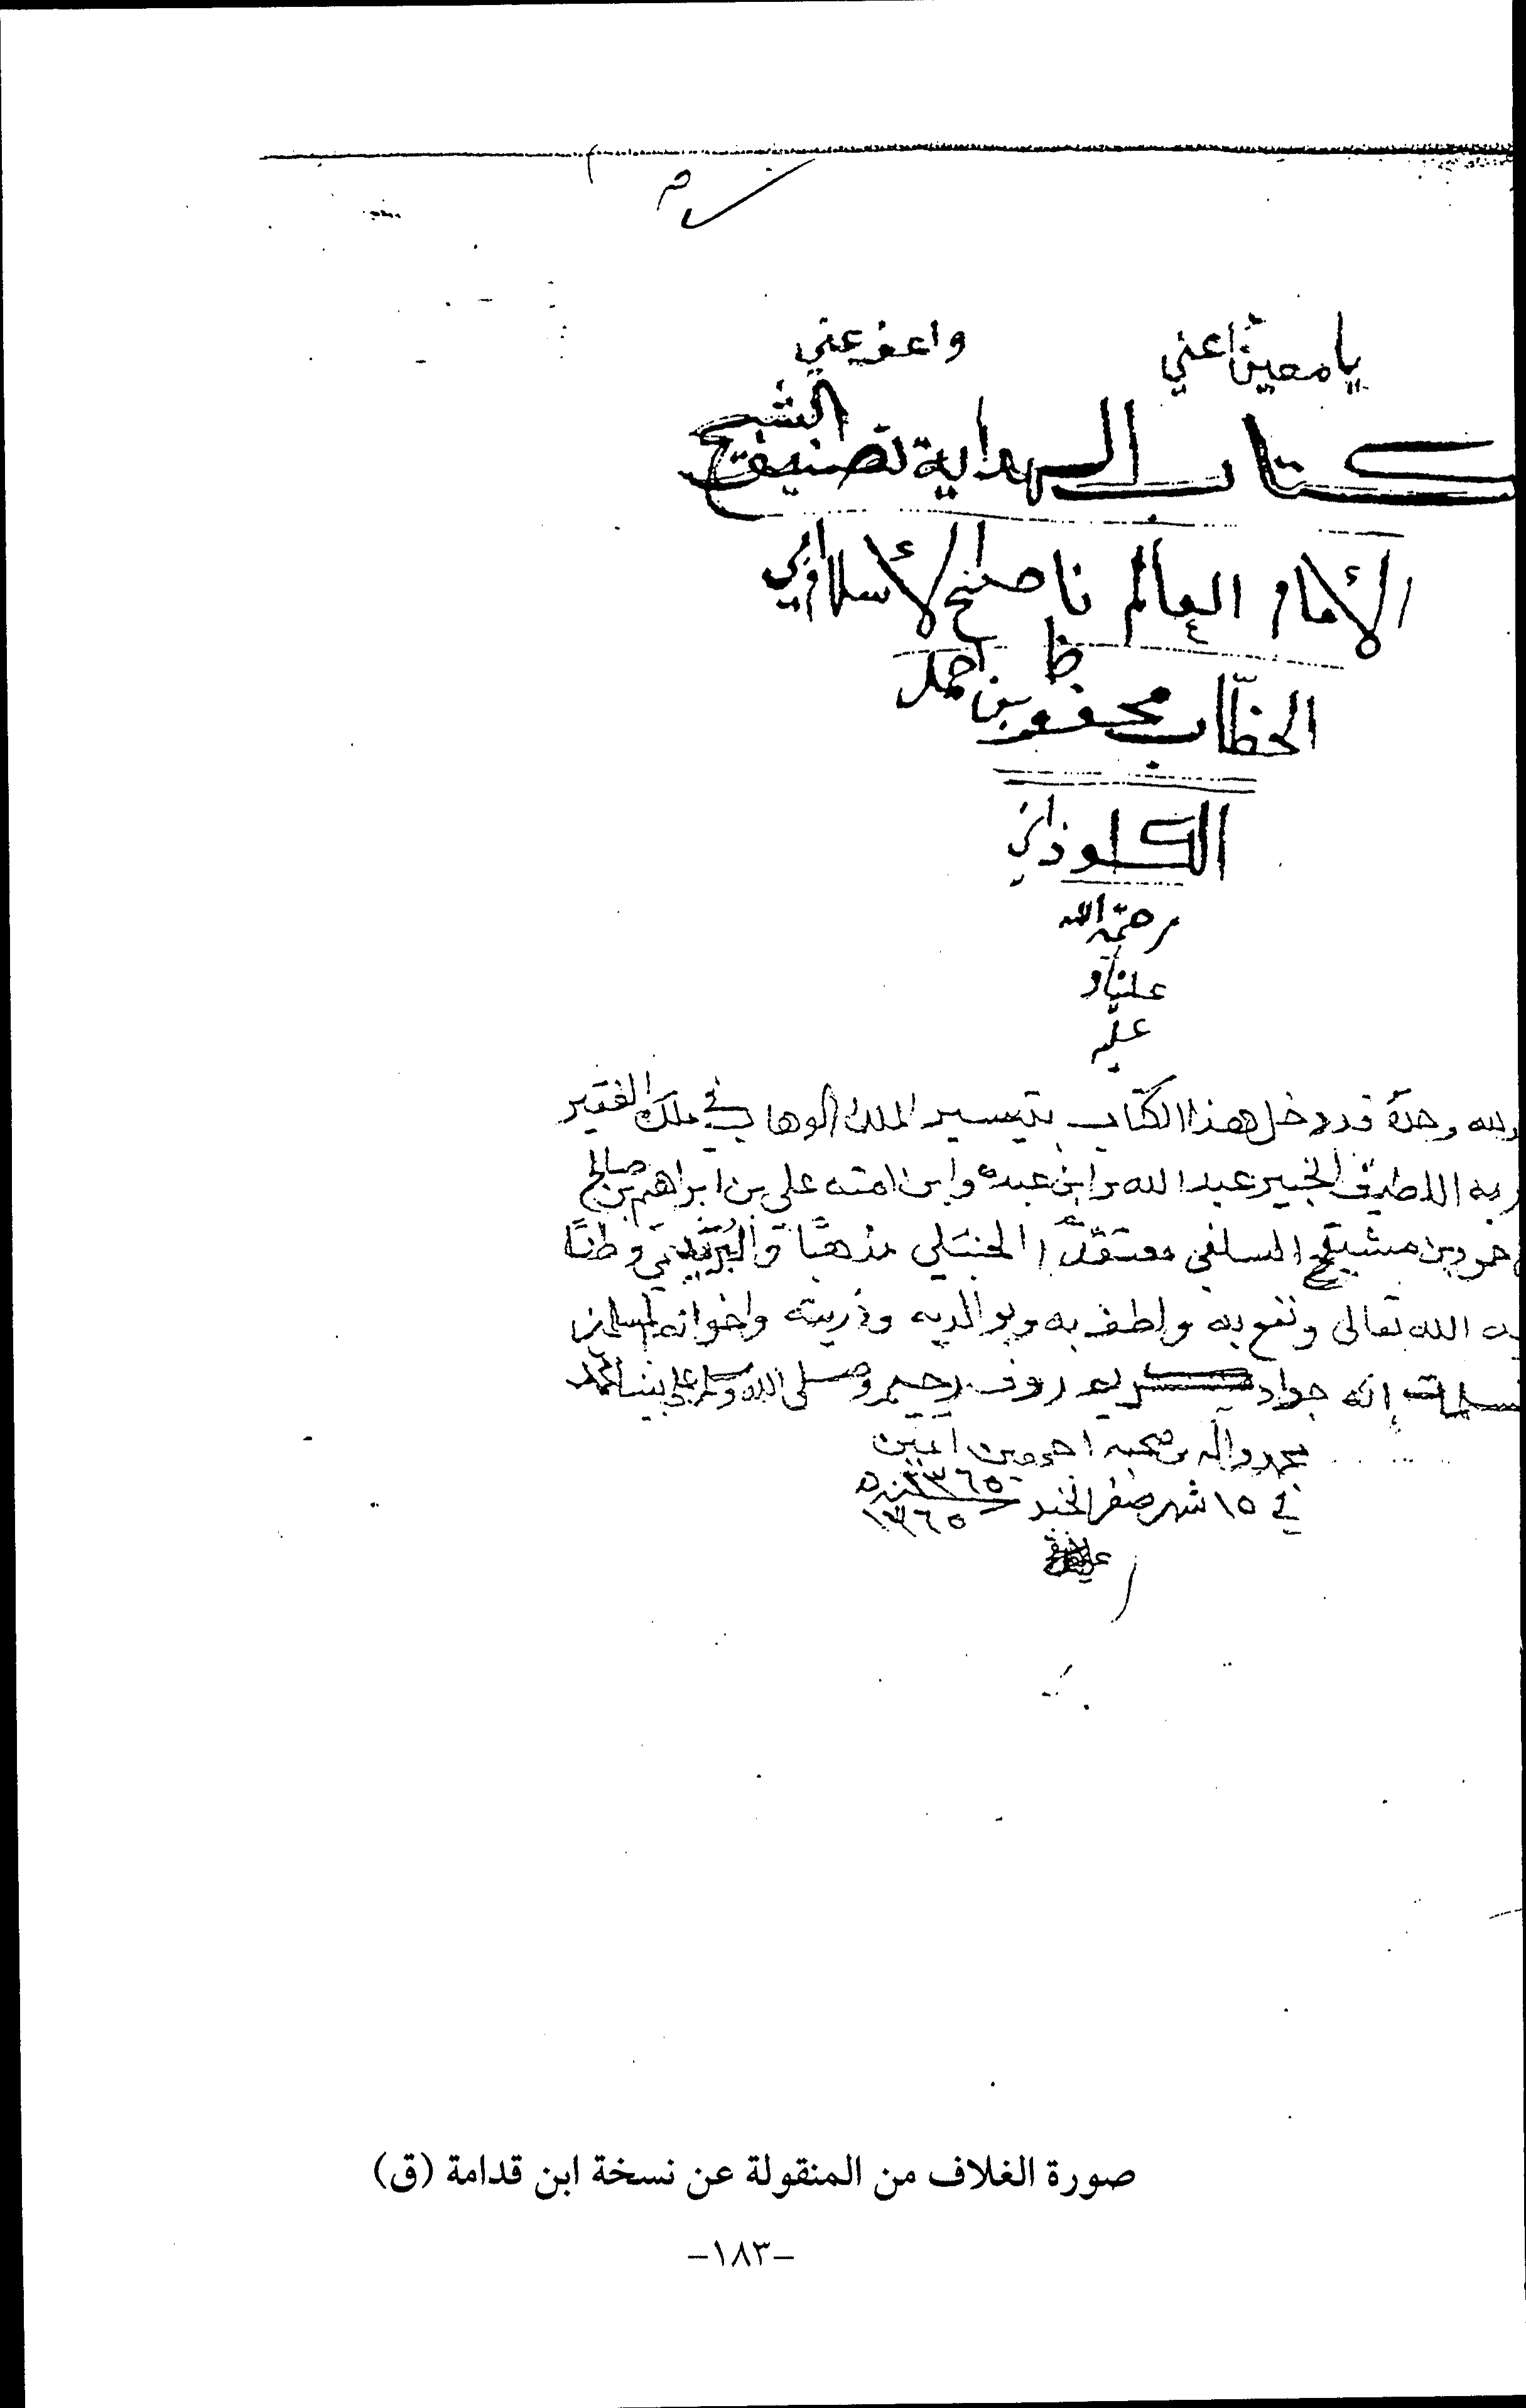 يا معين اعني واعف عني
كتاب الهداية تصنيف الشيخ
الأمام العالم ناصح الأسلام ابي
الخطّاب محفوظ بن احمد
الكلوذاني
رحمة الله
علينا و
عليه
لله وحده قد دخل هذا الكتاب بتيسير الملك الوهاب في ملك الفقير
ربه اللطيف الخبير عبد الله وابن عبده وابن امته علي بن ابراهيم بن صالح
حمود بن مشيقح السلفي معتقدًا الحنبلي مذهبًا والبُرَيْدي وطنًا
الله تعالى ونفع به ولطف به وبوالديه وذريته واخوانه المسلمين
إنه جواد كريم روف رحيم وصلى الله وسلم على نبينا محمد
محمد وآله وصحبه اجمعين آمين
في ١٥ شهر صفر الخير سنة ١٣٦٥
١٣٦٥
صورة الغلاف من المنقولة عن نسخة ابن قدامة (ق)
-١٨٣-